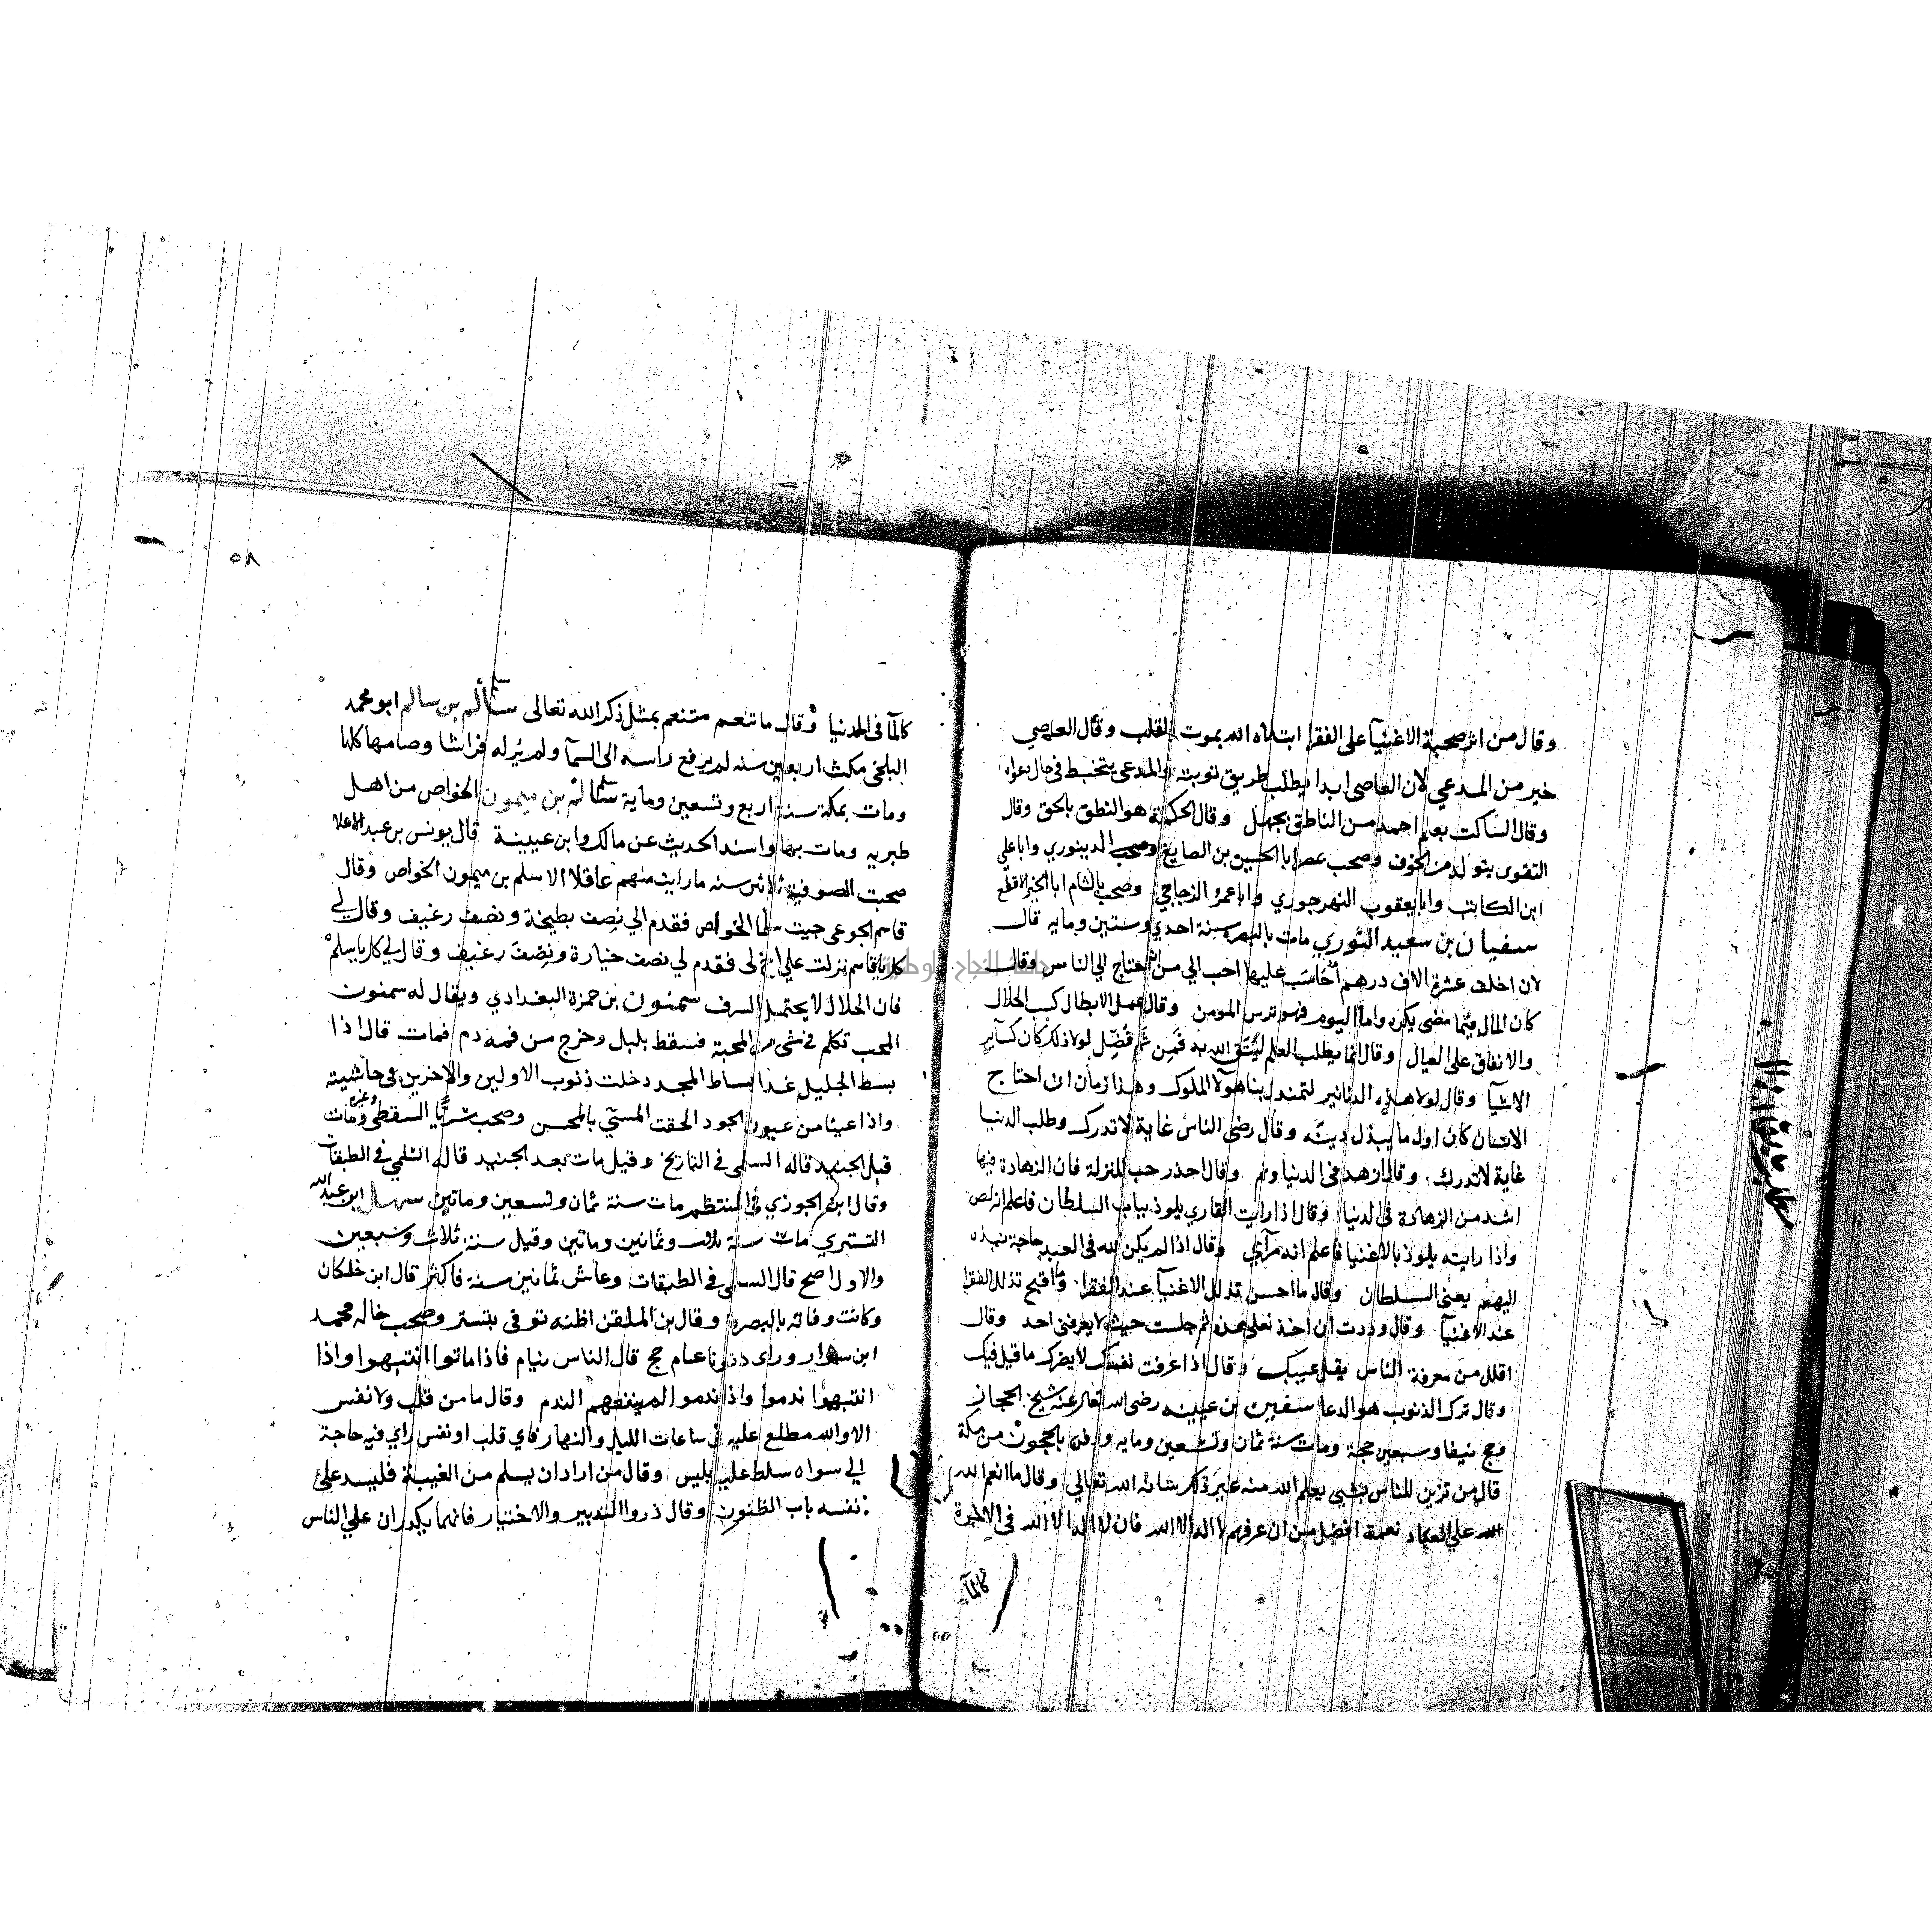 وقال من اثر صحبة الاغنيآ على الفقرا ابتلاه الله بموت القلب وقال العاصي
خير من المدعي لان العاصى ابدا يطلب طريق توبته والمدعي يتخبط في حال دعواه
وقال الساكت بعلم احمد من الناطق بجهل وقال الحكمة هو النطق بالحق وقال
التقوى يتولد من الخوف وصحب بمصر ابا الحسين بن الصايغ وصحب الدينوري وابا علي
ابن الكاتب وابا يعقوب النهرجوري وابا عمرو الزجاجي وصحب بالشام ابا الخير الاقطع
سفيان بن سعيد الثوري مات بالبصره سنة احدي وستين ومايه قال
لان اخلف عشرة الاف درهم أحاسَب عليها احب الي من ان احتاج الي الناس وقال
كان المال فيما مضى يكره واما اليوم فهو ترس المومن وقال عمل الابطال كسب الحلال
والانفاق على العيال وقال انما يطلب العلم ليُتقى الله به فمن ثم فُضِّل لولا ذلك كان كسآير
الاشيآ وقال لولا هذه الدنانير لتمندل بنا هوٓلا الملوك وهذا زمان ان احتاج
الانسان كان اول ما يبذل دينه وقال رضى الناس غاية لا تدرك وطلب الدنيا
غاية لا تدرك وقال ازهد في الدنيا ونم وقال احذر حب المنزلة فان الزهادة فيها
اشد من الزهادة في الدنيا وقال اذا رايت القاري يلوذ بباب السلطان فاعلم انه لص
واذا رايته يلوذ بالاغنيا فاعلم انه مرآي وقال اذا لم يكن لله في العبد حاجة نبذه
اليهم يعنى السلطان وقال ما احسن تذلل الاغنيآ عند الفقرا وما اقبح تذلل الفقرا
عند الاغنيآ وقال وددت ان اخذ نعلي هذه ثم جلست حيث لا يعرفنى احد وقال
اقلل من معرفة الناس يقل عيبك وقال اذا عرفت نفسك لا يضرك ما قيل فيك
وقال ترك الذنوب هو الدعا سفين بن عيينه رضى الله تعالى عنه شيخ الحجاز
حج نيفا وسبعين حجة ومات سنة ثمان وتسعين ومايه ودفن بالحجون من مكة
قال من تزين للناس بشي يعلم الله منه غير ذلك شانه الله تعالي وقال ما انعم الله
الله علي العباد نعمة افضل من ان عرفهم لا اله الا الله فان لا اله الا الله في الاخرة
كالمآ
٥٨
كالمآ فى الدنيا وقال ما تنعم متنعم بمثل ذكر الله تعالى سلم بن سالم ابو محمد
البلخى مكث اربعين سنه لم يرفع راسه الى السمآ ولم يُر له فراشا وصامها كلها
ومات بمكة سنة اربع وتسعين وماية سلم بن ميمون الخواص من اهل
طبريه ومات بها واسند الحديث عن مالك وابن عيينة قال يونس بن عبد الاعلا
صحبت الصوفية ثلاثين سنه ما رايت منهم عاقلا الا سلم بن ميمون الخواص وقال
قاسم الجوعى جيت سلما الخواص فقدم الي نصف بطيخة ونصف رغيف وقال لي
كل يا قاسم نزلت علي اخ لى فقدم لي نصف خيارة ونصف رغيف وقال لي كل يا سلم
فان الحلال لا يحتمل السرف سمنون بن حمزة البغدادي ويقال له سمنون
المحب تكلم في شى من المحبة فسقط بلبل وخرج من فمه دم فمات قال اذا
بسط الجليل غدا بساط المجد دخلت ذنوب الاولين والاخرين في حاشيته
واذا عينا من عيون الجود الحقت المسيئ بالمحسن وصحب سريًّا السقطي وغيره ومات
قبل الجنيد قاله السلمى فى التاريخ وقيل مات بعد الجنيد قاله السلمي في الطبقات
وقال ابن الجوزي في المنتظم مات سنة ثمان وتسعين وماتين سهل ابن عبد الله
التستري مات سنة ثلاث وثمانين وماتين وقيل سنة ثلاث وسبعين
والاول اصح قال السلمى فى الطبقات وعاش ثمانين سنة فاكثر قال ابن خلكان
وكانت وفاته بالبصرة وقال بن الملقن اظنه توفى بتستر وصحب خاله محمد
ابن سوار وراى ذا النون عام حج قال الناس نيام فاذا ماتوا انتبهوا واذا
انتبهوا ندموا واذا ندموا لم ينفعهم الندم وقال ما من قلب ولا نفس
الا والله مطلع عليه فى ساعات الليل والنهار فاي قلب او نفس راي فيه حاجة
الي سواه سلط عليه ابليس وقال من اراد ان يسلم من الغيبة فليسد علي
نفسه باب الظنون وقال ذروا التدبير والاختيار فانهما يكدران علي الناس